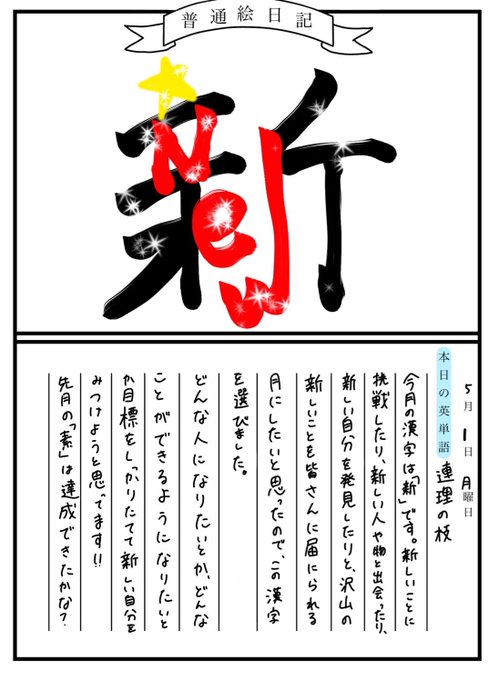 普通絵日記
新
New
5月1日月曜日
本日の英単語 連理の枝
今月の漢字は「新」です。新しいことに
挑戦したり、新しい人や物と出会ったり、
新しい自分を発見したりと、沢山の
新しいことを皆さんに届にられる
月にしたいと思ったので、この漢字
を選びました。
どんな人になりたいとか、どんな
ことができるようになりたいと
か目標をしっかりたてて新しい自分を
みつけようと思ってます!!
先月の「素」は達成できたかな?